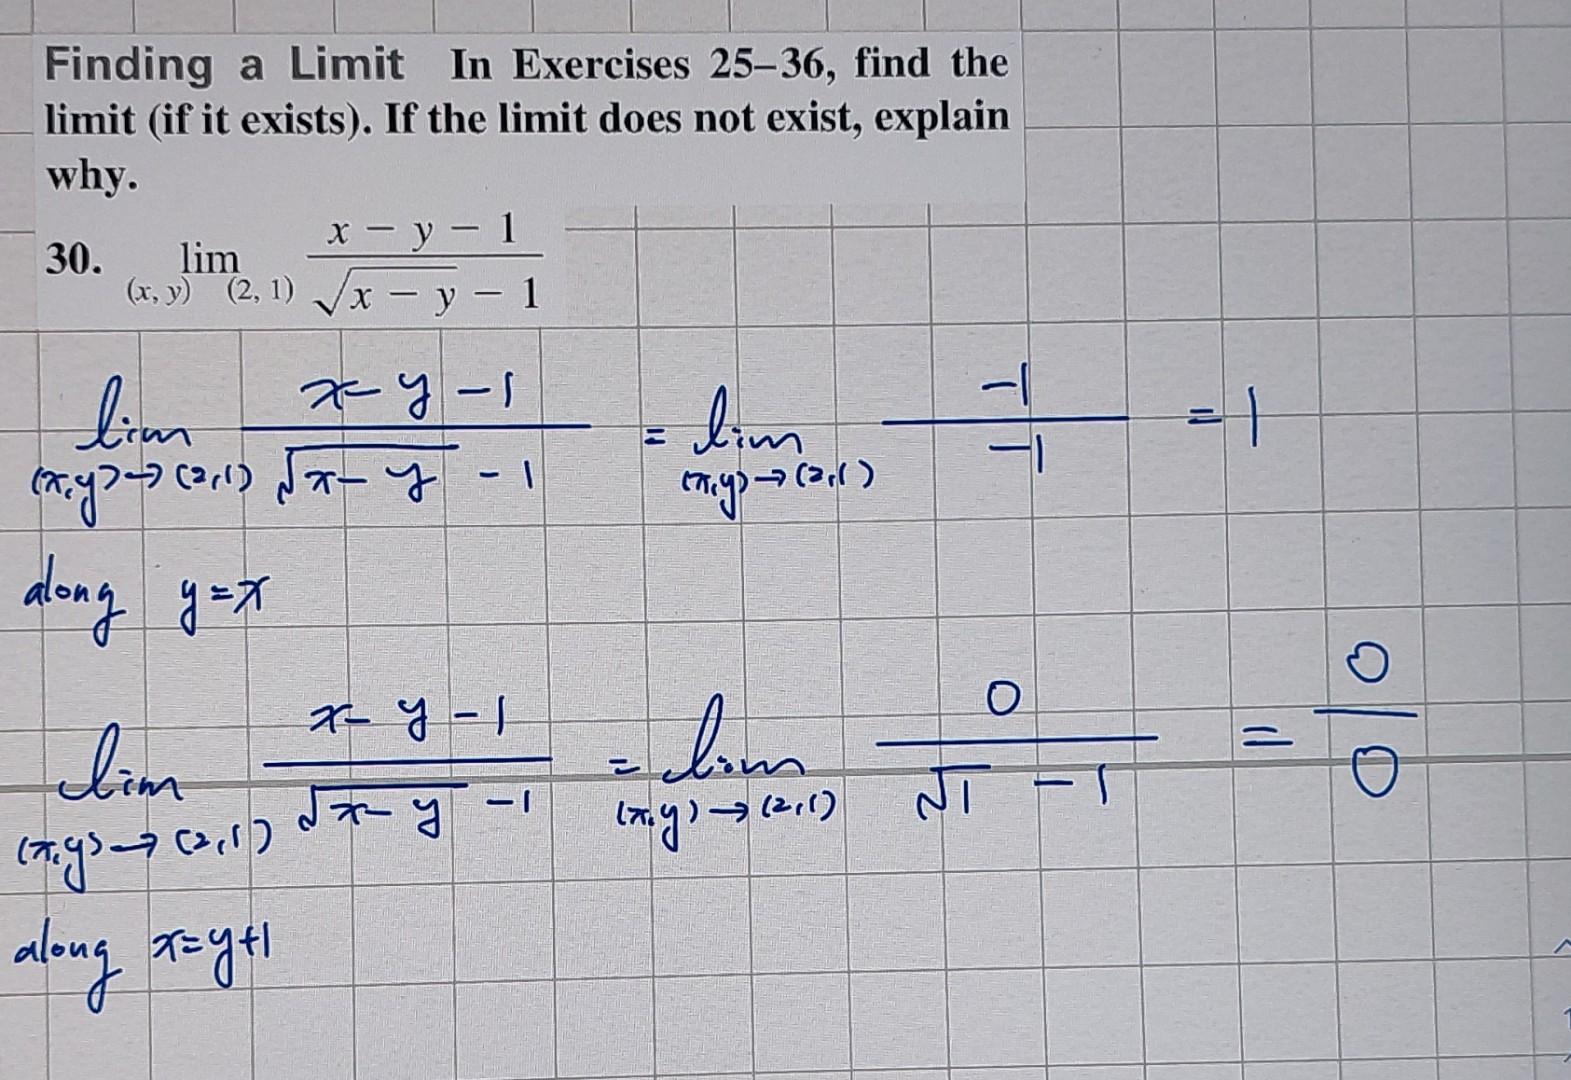 Finding a Limit In Exercises 25–36, find the
limit (if it exists). If the limit does not exist, explain
why.
30. lim (x, y) (2, 1) x − y − 1 / √(x − y) − 1
lim (x,y)→(2,1) x−y−1 / √(x−y) −1 = lim (x,y)→(2,1) −1 / −1 = 1
along y=x
lim (x,y)→(2,1) x−y−1 / √(x−y) −1 = lim (x,y)→(2,1) 0 / √1 −1 = 0 / 0
along x=y+1